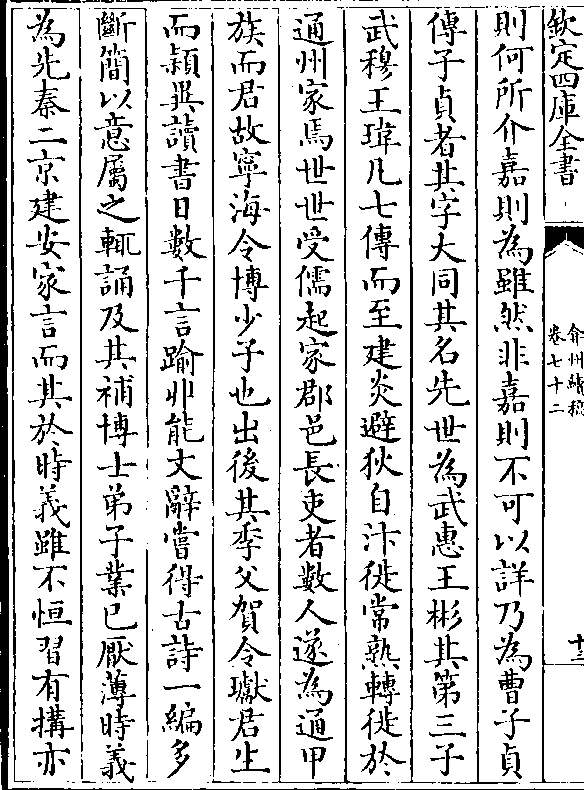 欽定四庫全書
弇州續稿
卷七十二
十三
則何所介嘉則為雖然非嘉則不可以詳乃為曹子貞
傳子貞者其字大同其名先世為武惠王彬其第三子
武穆王瑋凡七傳而至建炎避狄自汴徙常熟轉徙於
通州家焉世世受儒起家郡邑長吏者數人遂為通甲
族而君故寧海令博少子也出後其季父賀令瓛君生
而穎異讀書日數千言踰丱能文辭嘗得古詩一編多
斷簡以意屬之輒誦及其補博士弟子業已厭薄時義
為先秦二京建安家言而其於時義雖不恒習有搆亦